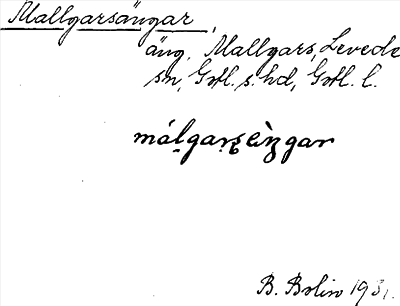 Mallgarsängar,
äng. Mallgars, Levede
sn, Gotl. s. hd, Gotl. l.
B. Bolin 1931.